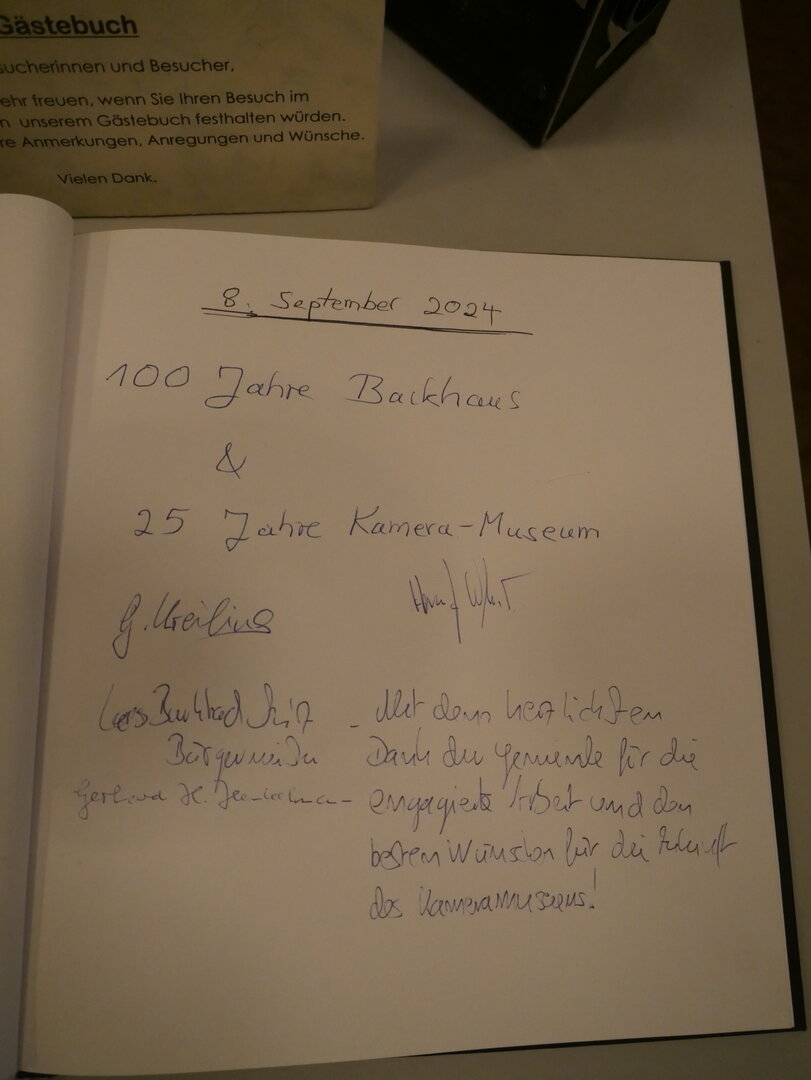 Gästebuch
sucherinnen und Besucher,
ehr freuen, wenn Sie Ihren Besuch im
n unserem Gästebuch festhalten würden.
re Anmerkungen, Anregungen und Wünsche.
Vielen Dank.
8. September 2024
100 Jahre Backhaus
&
25 Jahre Kamera-Museum
G. Kreiling
Lars Burkhard
Bürgermeister
Gerhard H.
- Mit dem herzlichsten
Dank der Gemeinde für die
engagierte Arbeit und den
besten Wünschen für die Zukunft
des Kameramuseums!